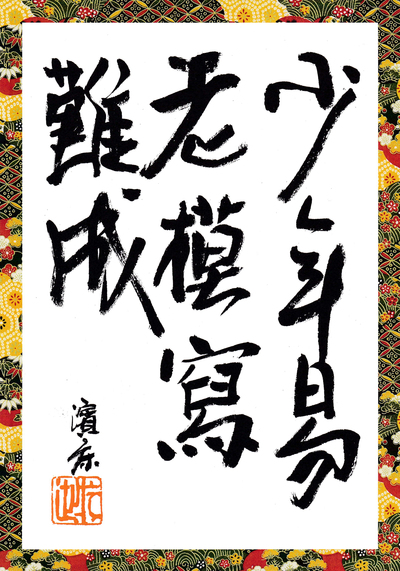 少年易
老模寫
難成
濱